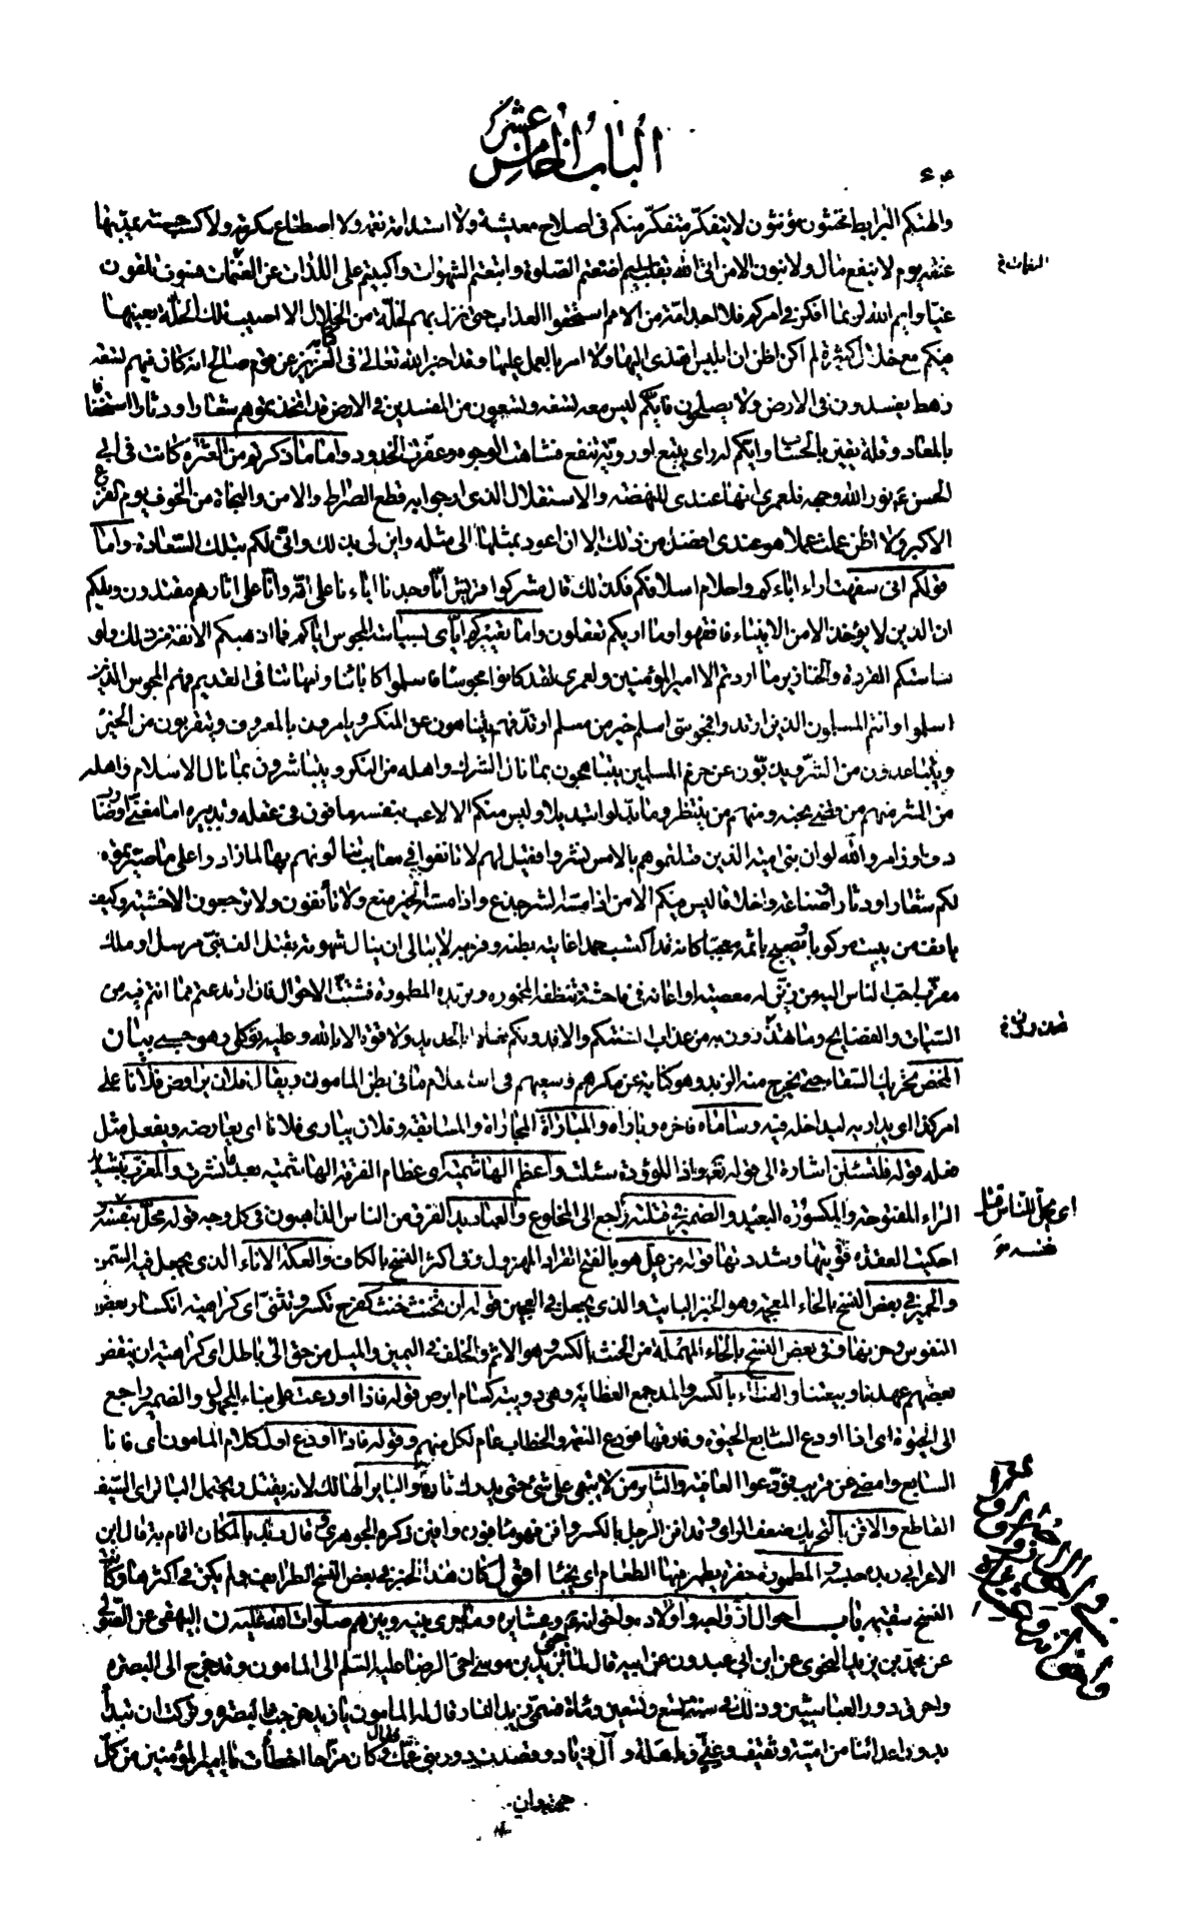 الباب الخامس عشر
والهتكم البرابط مخنثون مؤنثون لا يتفكر متفكر منكم في اصلاح معيشة ولا استدامة نعمة ولا اصطناع مكرمة ولا كسب حسنة يمد بها
عنقه يوم لا ينفع مال ولا بنون الا من اتى الله بقلب سليم اضعتم الصلوة واتبعتم الشهوات واكببتم على اللذات عن النغمات فسوف تلقون
النغمات خ
غيا وايم الله لربما افكر في امركم فلا اجد امة من الامم استحقوا العذاب حتى نزل بهم لخلة من الخلال الا اصيب تلك الخلة بعينها
فيكم مع خلال كثيرة لم اكن اظن ان ابليس اهتدى اليها ولا امر بالعمل عليها وقد اخبر الله تعالى في كتابه العزيز عن قوم صالح انه كان فيهم تسعة
رهط يفسدون في الارض ولا يصلحون فايكم ليس معه تسعة وتسعون من المفسدين في الارض قد اتخذتموهم شعارا ودثارا استخفافا
بالمعاد وقلة يقين بالحساب وايكم له راي يتبع او روية تنفع فشاهت الوجوه وعفرت الخدود واما ما ذكرتم من العثرة كانت في ابي
الحسن ع نور الله وجهه فلعمري انها عندي للنهضة والاستقلال الذي ارجو به قطع الصراط والامن والنجاة من الخوف يوم الفزع
الاكبر ولا اظن عملت عملا هو عندي افضل من ذلك الا ان اعود بمثلها الى مثله واين لي بذلك وانى لكم بتلك السعادة واما
قولكم اني سفهت اراء ابائكم واحلام اسلافكم فكذلك قال مشركوا قريش انا وجدنا اباءنا على امة وانا على اثارهم مقتدون ويلكم
ان الدين لا يؤخذ الا من الانبياء فافقهوا وما اريكم تعقلون واما تعييركم اياي بسياسة المجوس اياكم فما اذهبكم الانفة من ذلك ولو
ساستكم القردة والخنازير ما اردتم الا امير المؤمنين ولعمري لقد كانوا مجوسا فاسلموا كابائنا وامهاتنا في القديم فهم المجوس الذين
اسلموا وانتم المسلمون الذين ارتدوا فمجوسي اسلم خير من مسلم ارتد فهم يتناهون عن المنكر ويامرون بالمعروف ويتقربون من الخير
ويتباعدون من الشر ويذبون عن حرم المسلمين يتباهجون بما نال الشرك واهله من النكر ويتباشرون بما نال الاسلام واهله
من الخير منهم من قضى نحبه ومنهم من ينتظر وما بدلوا تبديلا وليس منكم الا لاعب بنفسه مافون في عقله وتدبيره اما مغن او ضارب
دف او زامر والله لو ان بني امية الذين قتلتموهم بالامس نشروا فقيل لهم لا تانفوا في معايب تنالونهم بها لما زادوا على ما صيرتموه
لكم شعارا ودثارا وصناعة واخلاقا ليس فيكم الا من اذا مسه الشر جزع واذا مسه الخير منع ولا تانفون ولا ترجعون الا خشية وكيف
يانف من يبيت مركوبا ويصبح باثمه معجبا كانه قد اكتسب حمدا غايته بطنه وفرجه لا يبالي ان ينال شهوته بقتل الف نبي مرسل او ملك
مقرب احب الناس اليه من زين له معصيته او اعانه في فاحشة تنظفه المخمورة وتربده المطمورة فشتت الاحوال فان ارتدعتم مما انتم فيه من
السيئات والفضايح وما تهذرون به من عذاب السنتكم والا فدونكم تعلوا بالحديد ولا قوة الا بالله وعليه توكلي وهو حسبي بيان
المخض تحريك السقاء حتى يخرج منه الزبد وهو كناية عن مكرهم وسعيهم في استعلام ما في بطن المامون ويقال فلان يراوض فلانا على
امر كذا اي يداريه ليدخله فيه وساماه فاخره وباراه والمباراة المجاراة والمسابقة وفلان يباري فلانا اي يعارضه ويفعل مثل
فعله قوله فلتسئلن اشارة الى قوله تعالى واذا الموؤدة سئلت واعظم الهاشمية اي عظام الفرقة الهاشمية بعد ما نشرت والمعرة بتشديد
الراء المفتوحة والمكسورة البعيد والضمير في قتلته راجع الى المخلوع والعباديد الفرق من الناس الذاهبون في كل وجه قوله محل بنفسه
اي محل للناس قتل نفسه
احكيت العقدة قويتها وشددتها قوله من حلم هو بالفتح القراد المهزول وفي اكثر النسخ بالكاف والعكة الاناء الذي يجعل فيه السمن
والخمير في بعض النسخ بالخاء المعجمة وهو الخبز البايت والذي يجعل في العجين قوله ان تخنث خنث كفرح تكسر وتثنى اي كراهية انكسار بعض
النفوس وحزبها وفي بعض النسخ بالحاء المهملة من الحنث بالكسر وهو الاثم والخلف في اليمين والميل من حق الى باطل اي كراهية ان ينقض
بعضهم عهدنا وبيعتنا والعظاء بالكسر والمد جمع العظاية وهي دويبة كسام ابرص قوله فاذا اودعت على بناء المجهول والضمير راجع
الى الحبوة اي اذا اودع السابع الحبوة وفارقها فودع النعمة والخطاب عام لكل منهم وقوله فاذا اودع اول كلام المامون اي فانا
السابع وامضي عن قريب فودعوا العافية والثاير من لا يبقي على شئ حتى يدرك ثاره والباير الهالك لانه يقتل ويحتمل الباتر اي السيف
القاطع والافن بالتحريك ضعف الراي وقد افن الرجل بالكسر وافن فهو مافون وافين ذكره الجوهري وقال ربد بالمكان اقام به قال ابن
الاعرابي ربده حبسه والمطمورة حفرة يطمر فيها الطعام اي يخبا اقول كان هذا الخبر في بعض النسخ الطرايف ولم يكن في اكثرها وكانت
النسخ سقيمة باب احوال ازواجه واولاده واخوانه وعشايره وما جرى بينه وبينهم صلوات الله عليه ن البيهقي عن الصولي
عن محمد بن يزيد النحوي عن ابن ابي عبدون عن ابيه قال لما جئ بزيد بن موسى اخي الرضا عليه السلم الى المامون وقد خرج الى البصرة
واحرق دور العباسيين وذلك في سنة تسع وتسعين ومائة فسمي زيد النار قال له المامون يا زيد خرجت بالبصرة وتركت ان تبدا
بدور اعدائنا من امية وثقيف وغني وباهلة وآل زياد وقصدت دور بني عمك فقال وكان مزاحا اخطأت يا امير المؤمنين من كل
جهة وان